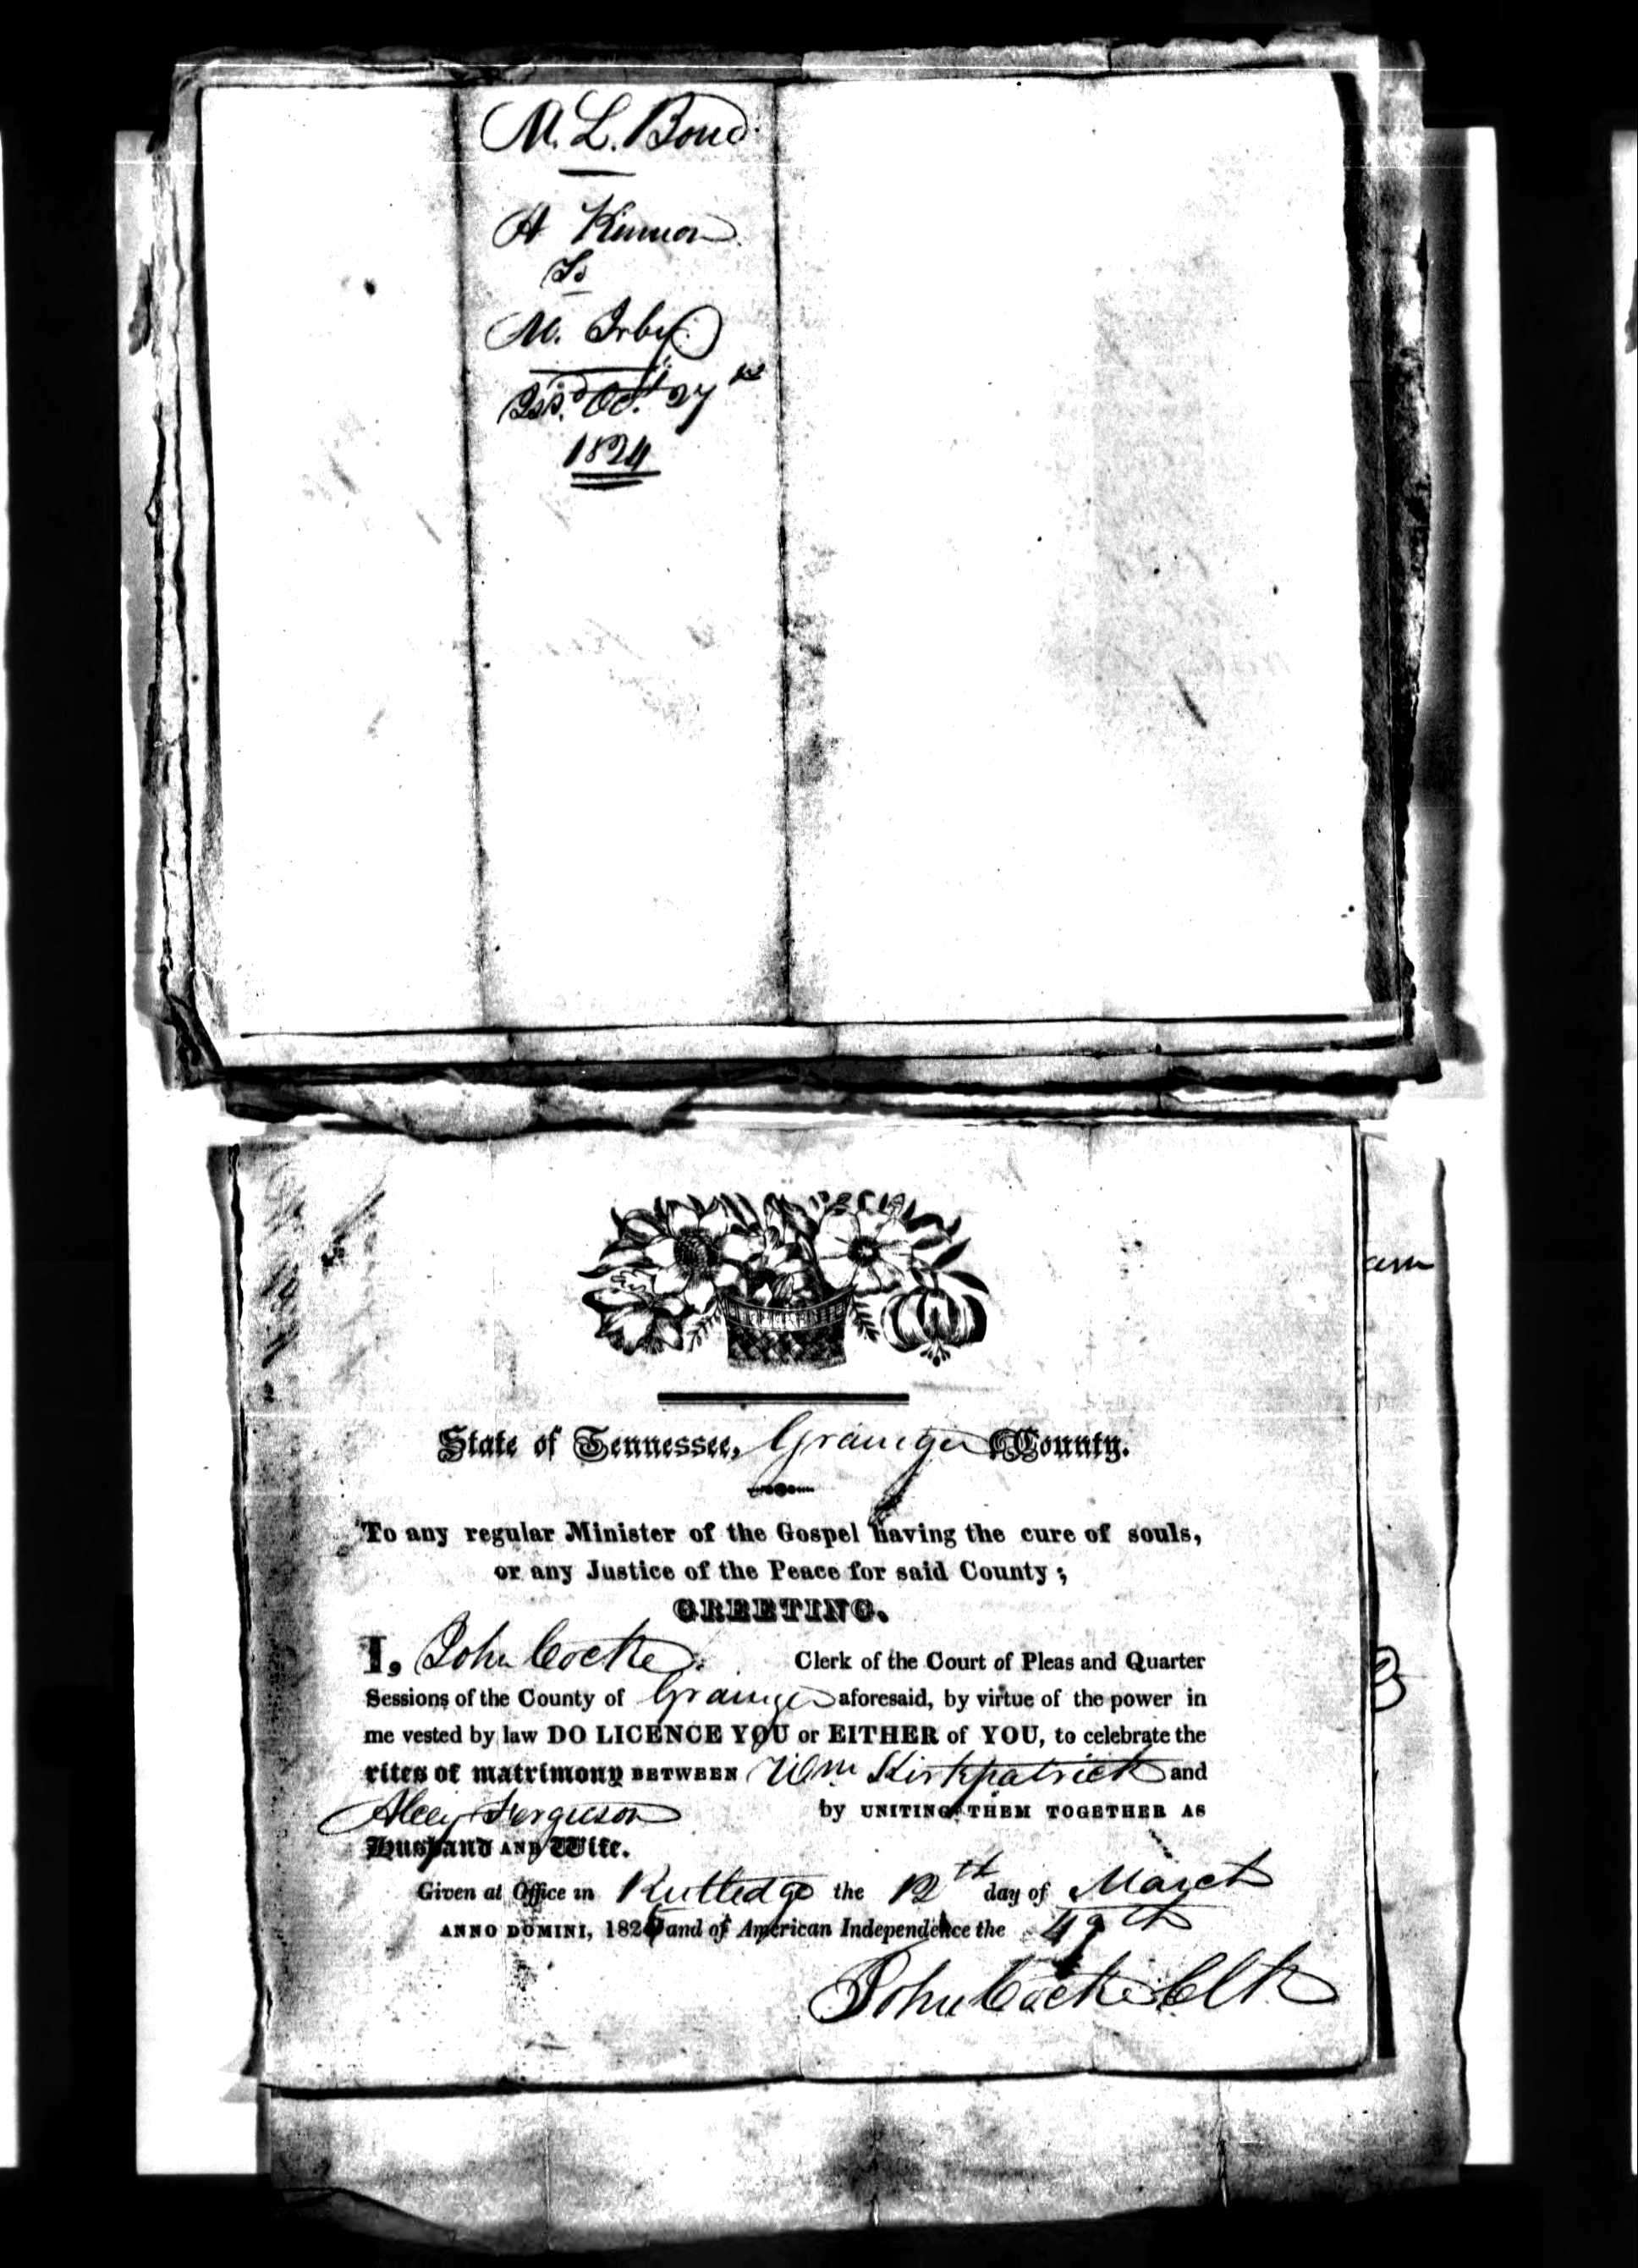 M. L. Bond
H Kinnon
To
M. Irby
Issd. Oct. 27th
1824
State of Tennessee, Grainger County.
To any regular Minister of the Gospel having the cure of souls,
or any Justice of the Peace for said County;
GREETING.
I, John Cocke Clerk of the Court of Pleas and Quarter
Sessions of the County of Grainger aforesaid, by virtue of the power in
me vested by law DO LICENCE YOU or EITHER of YOU, to celebrate the
rites of matrimony BETWEEN Wm Kirkpatrick and
Alcey Ferguson by UNITING THEM TOGETHER AS
Husband AND Wife.
Given at Office in Rutledge the 12th day of March
ANNO DOMINI, 1825 and of American Independence the 49th
John Cocke Clk